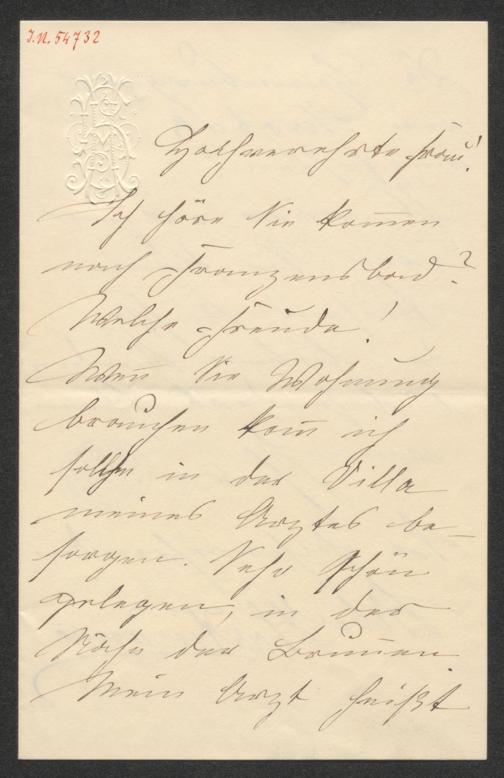 J.N. 54732
Hochverehrte Frau!
Ich höre Sie kom̄en
nach Franzensbad?
Welche Freude!
Wen̄ Sie Wohnung
brauchen kan̄ ich
solche in der Villa
meines Arztes be-
sorgen. Sehr schön
gelegen, in der
Nähe der Brun̄en
Mein Arzt heißt